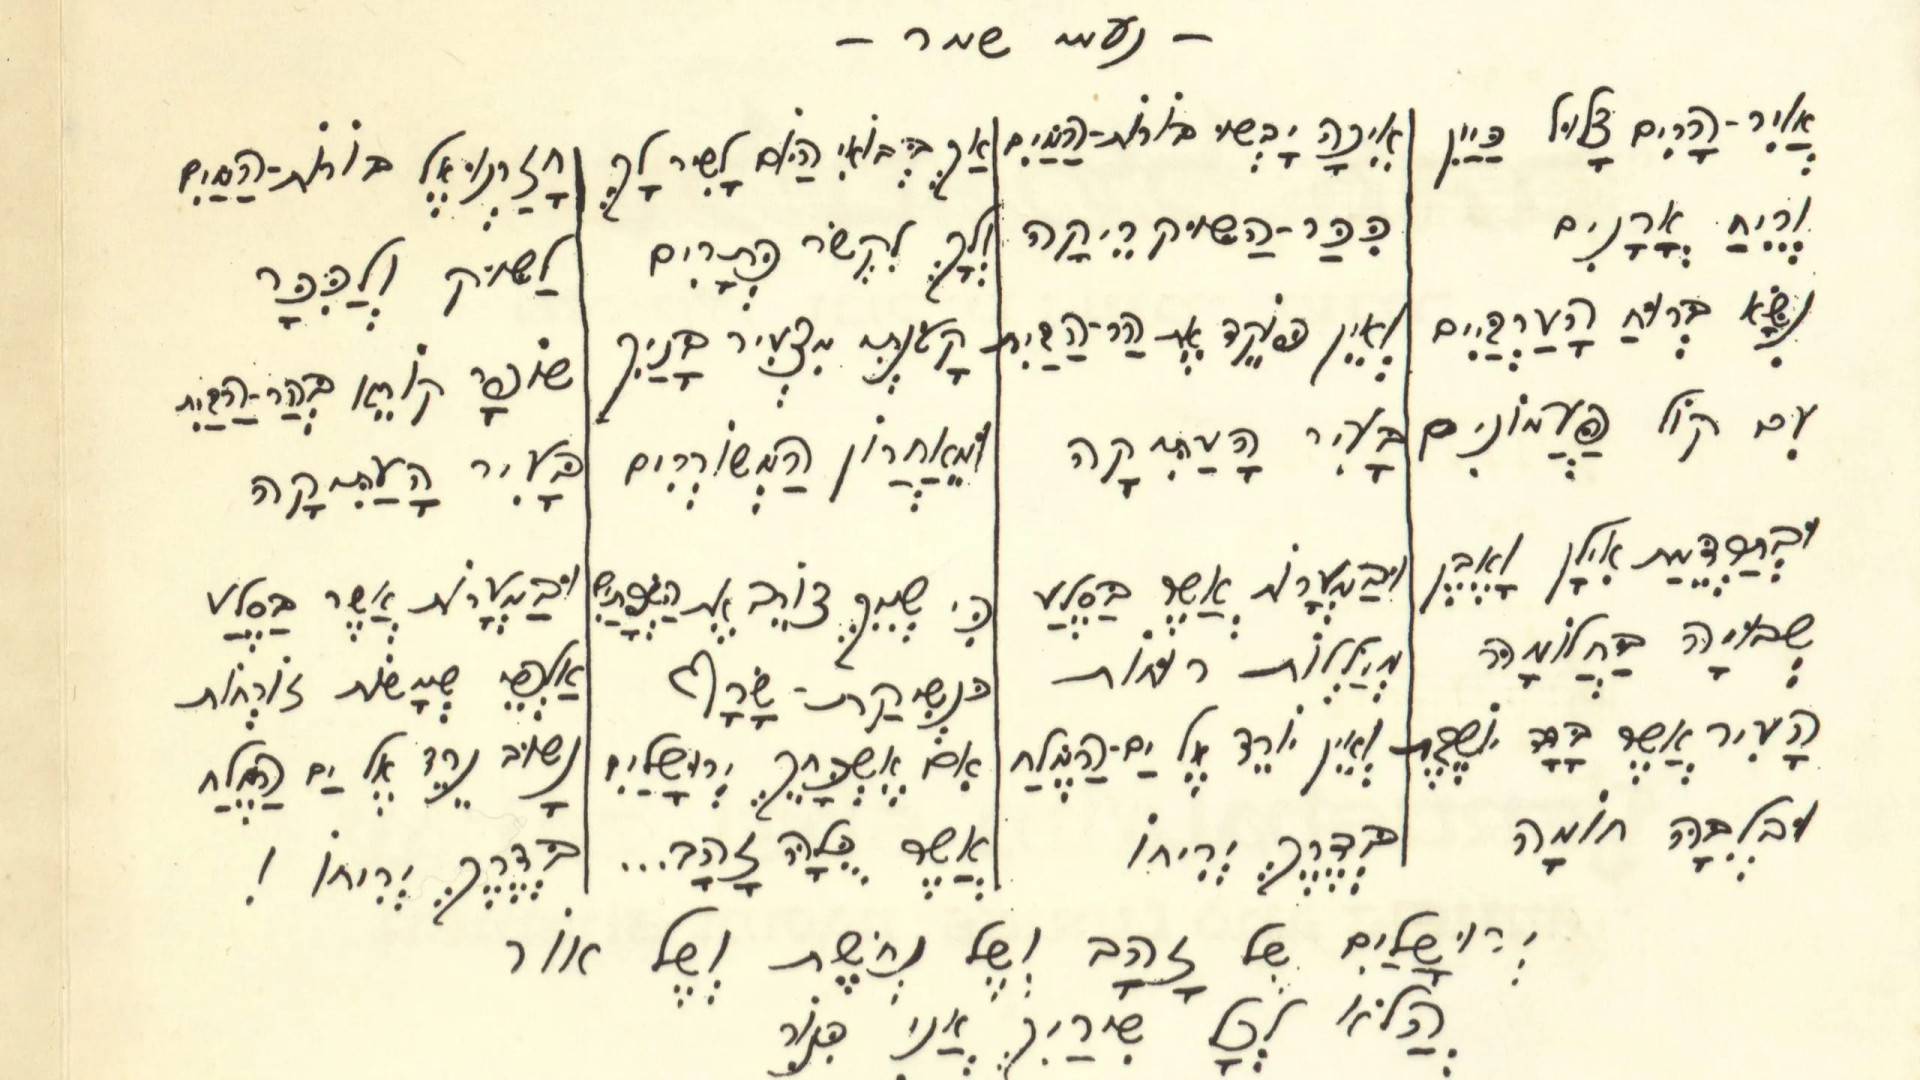 - נעמי שמר -
אֲוִיר-הָרִים צָלוּל כַּיַּיִן
וְרֵיחַ אֳרָנִים
נִשָּׂא בְּרוּחַ הָעַרְבַּיִם
עִם קוֹל פַּעֲמוֹנִים
וּבְתַרְדֵּמַת אִילָן וָאֶבֶן
שְׁבוּיָה בַּחֲלוֹמָהּ
הָעִיר אֲשֶׁר בָּדָד יוֹשֶׁבֶת
וּבְלִבָּהּ חוֹמָה
אֵיכָה יָבְשׁוּ בּוֹרוֹת-הַמַּיִם
כִּכַּר-הַשּׁוּק רֵיקָה
וְאֵין פּוֹקֵד אֶת הַר-הַבַּיִת
בָּעִיר הָעַתִּיקָה
וּבַמְּעָרוֹת אֲשֶׁר בַּסֶּלַע
מְיַלְּלוֹת רוּחוֹת
וְאֵין יוֹרֵד אֶל יַם-הַמֶּלַח
בְּדֶרֶךְ יְרִיחוֹ
אַךְ בְּבוֹאִי הַיּוֹם לָשִׁיר לָךְ
וְלָךְ לִקְשֹׁר כְּתָרִים
קָטֹנְתִּי מִצְּעִיר בָּנַיִךְ
וּמֵאַחֲרוֹן הַמְשׁוֹרְרִים
כִּי שְׁמֵךְ צוֹרֵב אֶת הַשְּׂפָתַיִם
כִּנְשִׁיקַת-שָׂרָף
אִם אֶשְׁכָּחֵךְ יְרוּשָׁלַיִם
אֲשֶׁר כֻּלָּהּ זָהָב...
חָזַרְנוּ אֶל בּוֹרוֹת-הַמַּיִם
לַשּׁוּק וְלַכִּכָּר
שׁוֹפָר קוֹרֵא בְּהַר-הַבַּיִת
בָּעִיר הָעַתִּיקָה
וּבַמְּעָרוֹת אֲשֶׁר בַּסֶּלַע
אַלְפֵי שְׁמָשׁוֹת זוֹרְחוֹת
נָשׁוּב נֵרֵד אֶל יַם הַמֶּלַח
בְּדֶרֶךְ יְרִיחוֹ !
יְרוּשָׁלַיִם שֶׁל זָהָב וְשֶׁל נְחֹשֶׁת וְשֶׁל אוֹר
הֲלֹא לְכָל שִׁירַיִךְ אֲנִי כִּנּוֹר